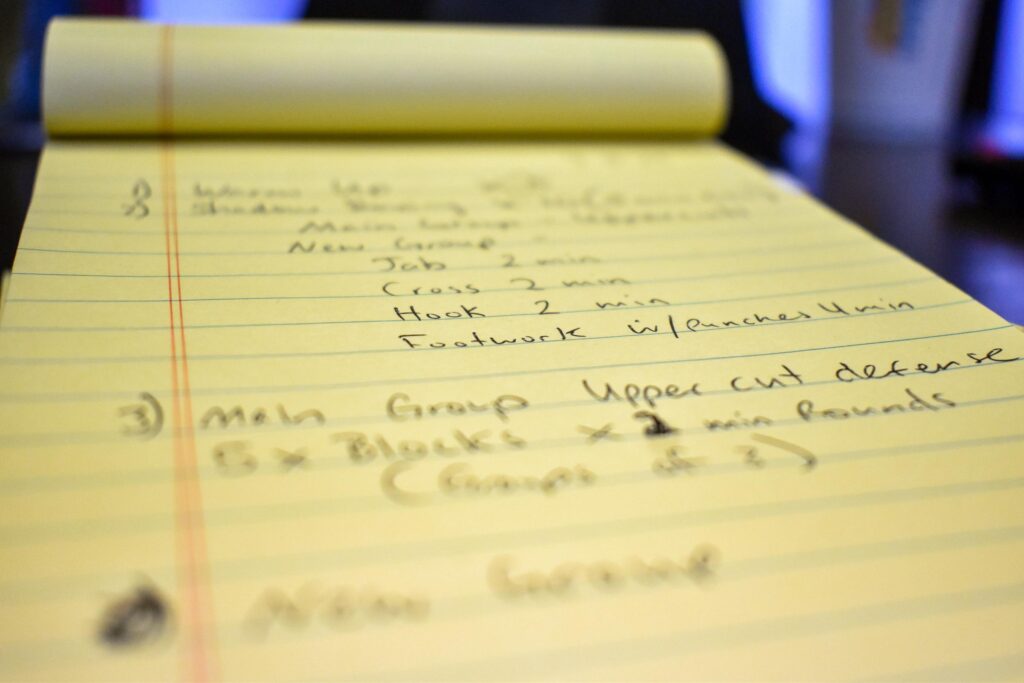 1) Warm Up
2) Shadow Boxing
Main Group - Uppercuts
New Group -
Jab 2 min
Cross 2 min
Hook 2 min
Footwork w/punches 4 min
3) Main Group Uppercut defense
5 x Blocks x 2 min Rounds
(Groups of 3)
New Group